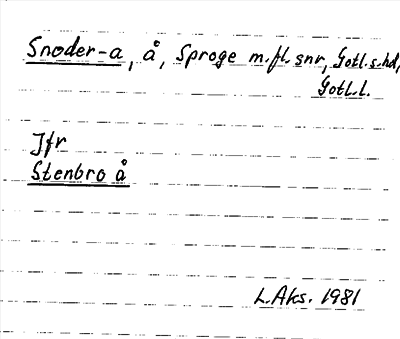 Snoder-a, å, Sproge m.fl. snr, Gotl.s.hd,
Gotl.l.
Jfr
Stenbro å
L.Aks. 1981